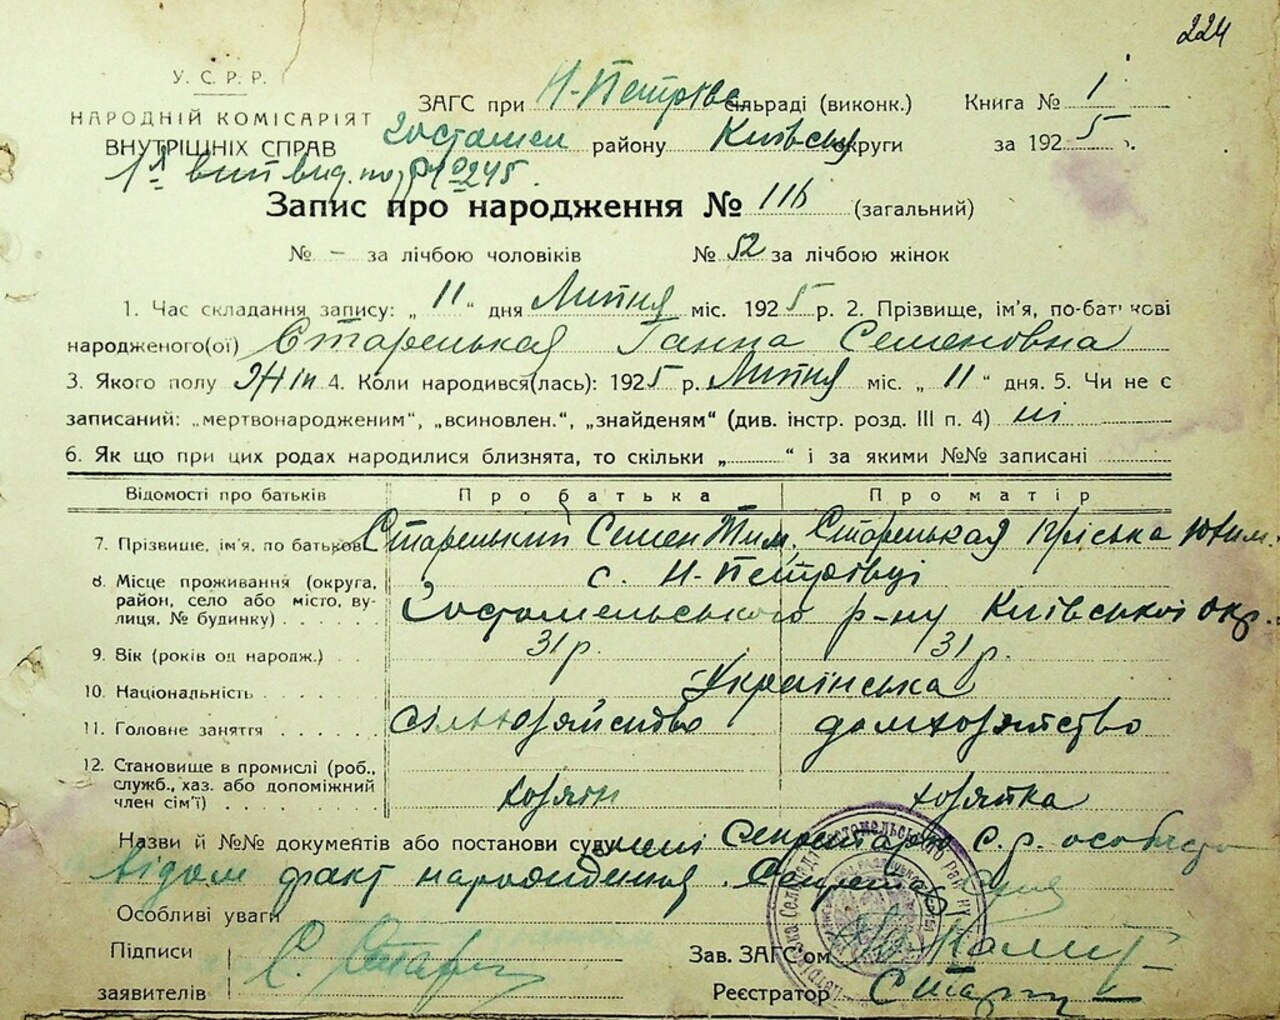 224
У. С. Р. Р.
НАРОДНІЙ КОМІСАРІЯТ
ВНУТРІШНІХ СПРАВ
ЗАГС при Н-Петрівс сільраді (виконк.) Книга № 1
Гостомел району Київськ округи за 1925 р.
Запис про народження № 116 (загальний)
№ - за лічбою чоловіків № 52 за лічбою жінок
1. Час складання запису: „11“ дня Липня міс. 1925 р. 2. Прізвище, ім'я, по-батькові
народженого(ої) Старенькая Ганна Семеновна
3. Якого полу жін 4. Коли народився(лась): 1925 р. Липня міс. „11“ дня. 5. Чи не є
записаний: „мертвонародженим“, „всиновлен.“, „знайденям“ (див. інстр. розд. III п. 4) ні
6. Як що при цих родах народилися близнята, то скільки „ “ і за якими №№ записані
Відомості про батьків Про батька Про матір
7. Прізвище, ім'я, по батьков Старенький Семен Тим. Старенькая
8. Місце проживання (округа, с. Н-Петрівці
район, село або місто, ву- Гостомельського р-ну Київської окр.
лиця, № будинку)
9. Вік (років од народж.) 31 р. 31 р.
10. Національність Українська
11. Головне заняття сільхозяйство домхозяйство
12. Становище в промислі (роб.,
служб., хаз. або допоміжний
член сім'ї) хозяін хозяйка
Назви й №№ документів або постанови суду мені Секретарю с.р. особисто
відом факт народження. Секретар
Особливі уваги
Підписи
заявителів С. Стар
Зав. ЗАГС'ом
Реєстратор